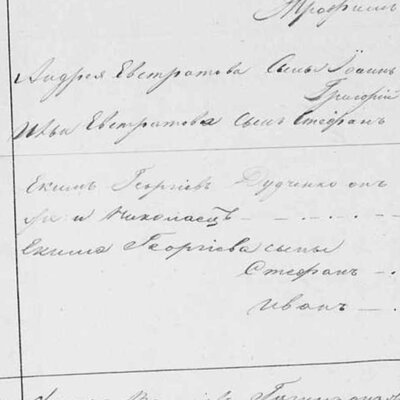 Трофимъ
Андрея Евстратова сыны Іоаннъ
Григорій
Ильи Евстратова сынъ Стефанъ
Екимъ Георгіевъ Дудченко онъ
же и Николаецъ
Екима Георгіева сыны
Стефанъ
Иванъ